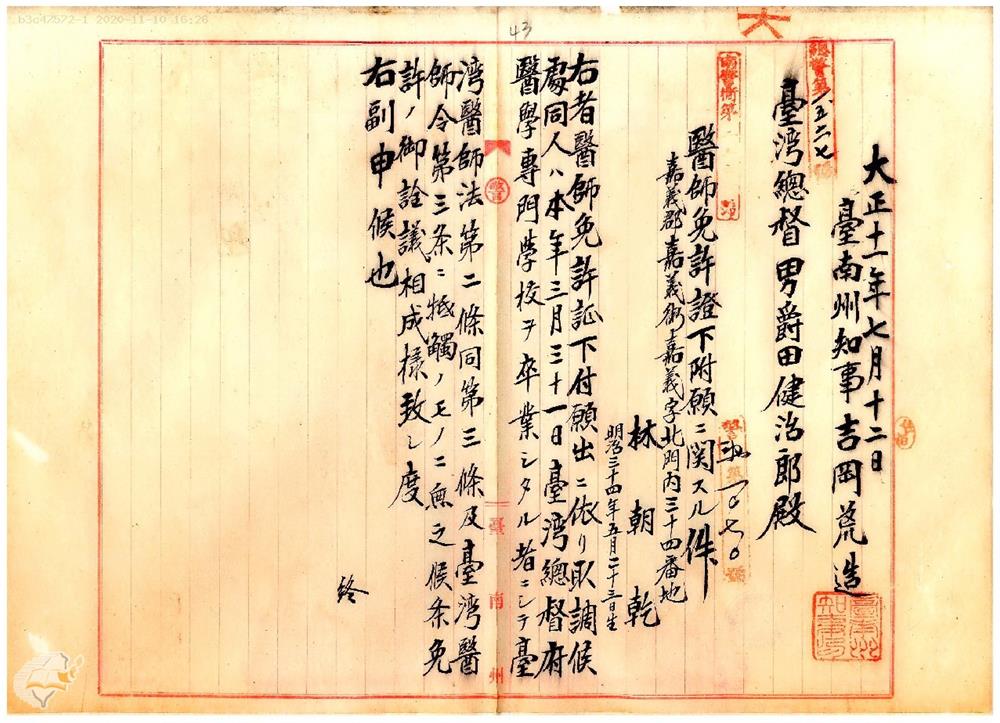 b3c47572-1 2020-11-10 16:26
43
大正十一年七月十二日
臺南州知事吉岡荒造
臺灣總督男爵田健治郎殿
醫師免許證下附願ニ関スル件
嘉義郡嘉義街嘉義字北門内三十四番地
林朝乾
明治三十四年五月二十三日生
右者醫師免許証下付願出ニ依リ取調候
處同人ハ本年三月三十一日臺湾總督府
醫學專門學校ヲ卒業シタル者ニシテ臺
湾醫師法第二條同第三條及臺湾醫
師令第三条ニ牴觸ノモノニ無之候条免
許ノ御詮議相成様致シ度
右副申候也
終
臺南州